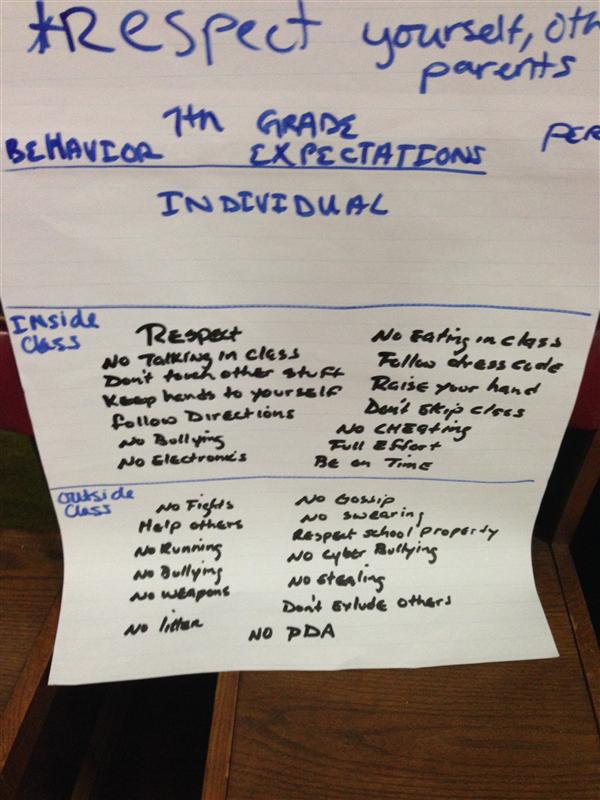 *Respect yourself, oth
parents
7th GRADE
BEHAVIOR EXPECTATIONS PER
INDIVIDUAL
INside
Class
Respect
No Talking in class
Don't touch other stuff
Keep hands to yourself
follow Directions
No Bullying
No Electronis
No Eating in class
Follow dress code
Raise your hand
Don't skip class
No CHEating
Full Effort
Be on Time
outside
Class
No Fights
Help others
No Running
No Bullying
No weapons
No litter
No Gossip
No swearing
Respect school property
No cyber Bullying
No stealing
Don't Exlude others
NO PDA